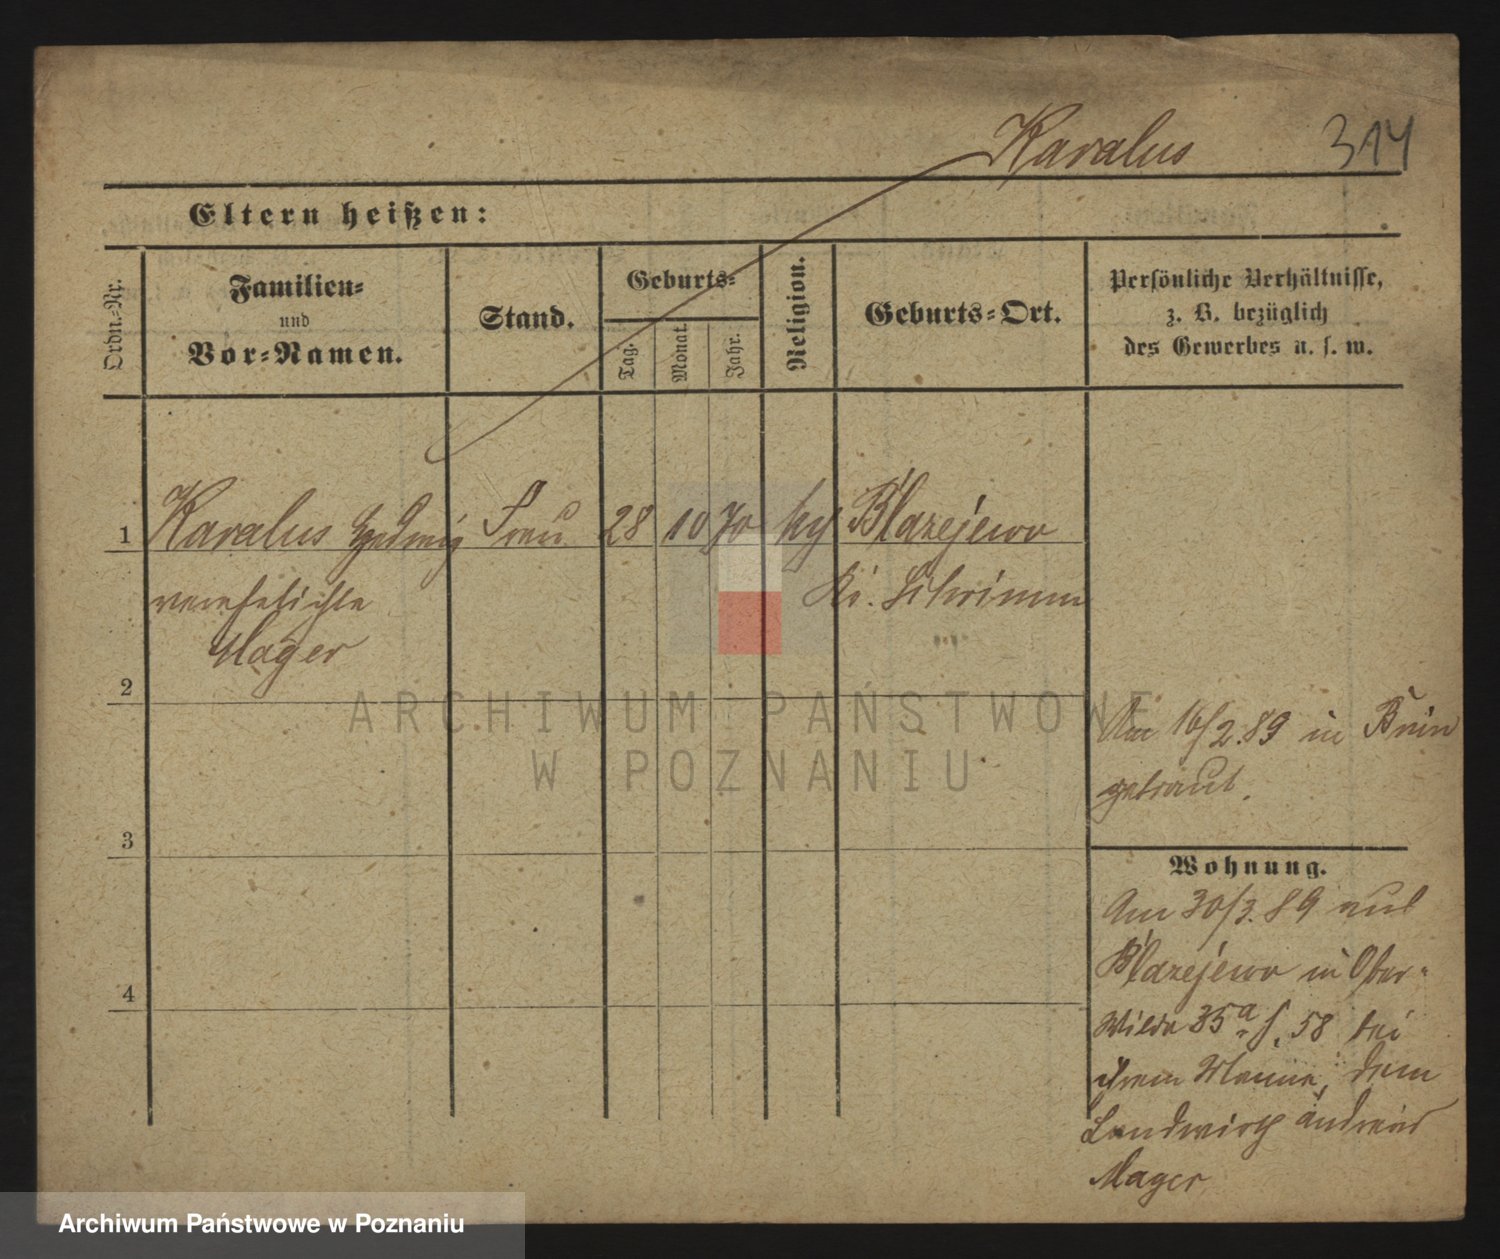 Kavalus 314
Eltern heißen:
Ordn.-Nr.
Familien-
und
Vor-Namen.
Stand.
Geburts-
Tag.
Monat.
Jahr.
Religion.
Geburts-Ort.
Persönliche Verhältnisse,
z. B. bezüglich
des Gewerbes u. s. w.
1 Kavalus Hedwig Frau 28 10 70 Blazejewo
verehelichte Kr. Schrimm
Mager
2
Am 16/2.89 in Bnin
getraut.
3
Wohnung.
Am 30/3.89 aus
Blazejewo in Ober-
4
Wilda 35a S. 58 bei
ihrem Manne, dem
Landwirth Andreas
Mager
ARCHIWUM PAŃSTWOWE
W POZNANIU
Archiwum Państwowe w Poznaniu